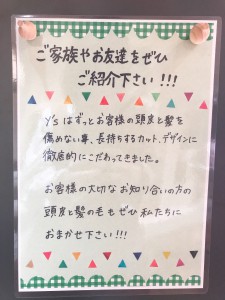 ご家族やお友達をぜひ
ご紹介下さい!!!
Y'sはずっとお客様の頭皮と髪を
傷めない事、長持ちするカット、デザインに
徹底的にこだわってきました。
お客様の大切なお知り合いの方の
頭皮と髪の毛もぜひ私たちに
おまかせ下さい!!!